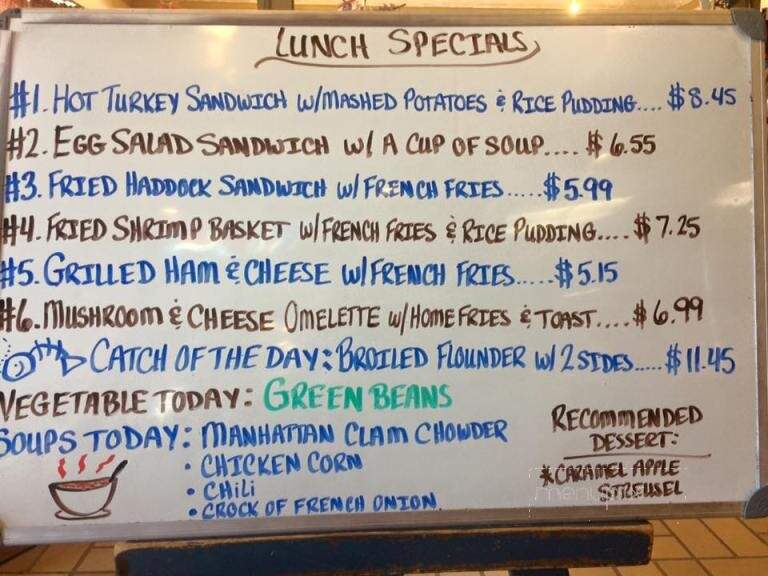 LUNCH SPECIALS
#1. HOT TURKEY SANDWICH W/MASHED POTATOES & RICE PUDDING.... $8.45
#2. EGG SALAD SANDWICH W/ A CUP OF SOUP.... $6.55
#3. FRIED HADDOCK SANDWICH W/ FRENCH FRIES.....$5.99
#4. FRIED SHRIMP BASKET W/FRENCH FRIES & RICE PUDDING....$7.25
#5. GRILLED HAM & CHEESE W/FRENCH FRIES.....$5.15
#6. MUSHROOM & CHEESE OMELETTE W/HOME FRIES & TOAST....$6.99
CATCH OF THE DAY: BROILED FLOUNDER W/ 2 SIDES.....$11.45
VEGETABLE TODAY: GREEN BEANS
SOUPS TODAY: MANHATTAN CLAM CHOWDER
• CHICKEN CORN
• CHILI
• CROCK OF FRENCH ONION
RECOMMENDED
DESSERT:
*CARAMEL APPLE
STREUSEL